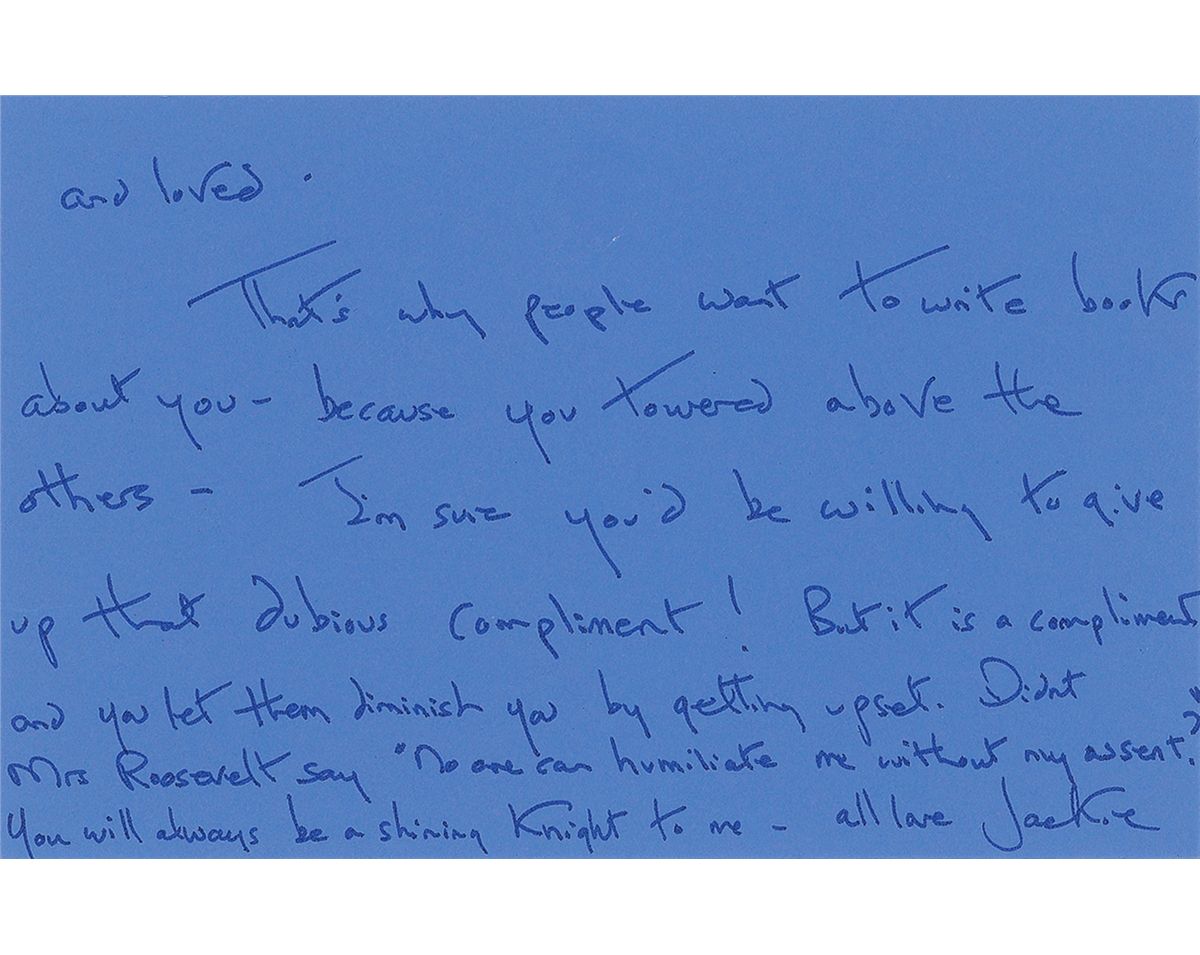 and loved.
That's why people want to write books
about you - because you towered above the
others - I'm sure you'd be willing to give
up that dubious compliment! But it is a compliment
and you let them diminish you by getting upset. Didnt
Mrs Roosevelt say "No one can humiliate me without my assent?"
You will always be a shining Knight to me - all love Jackie